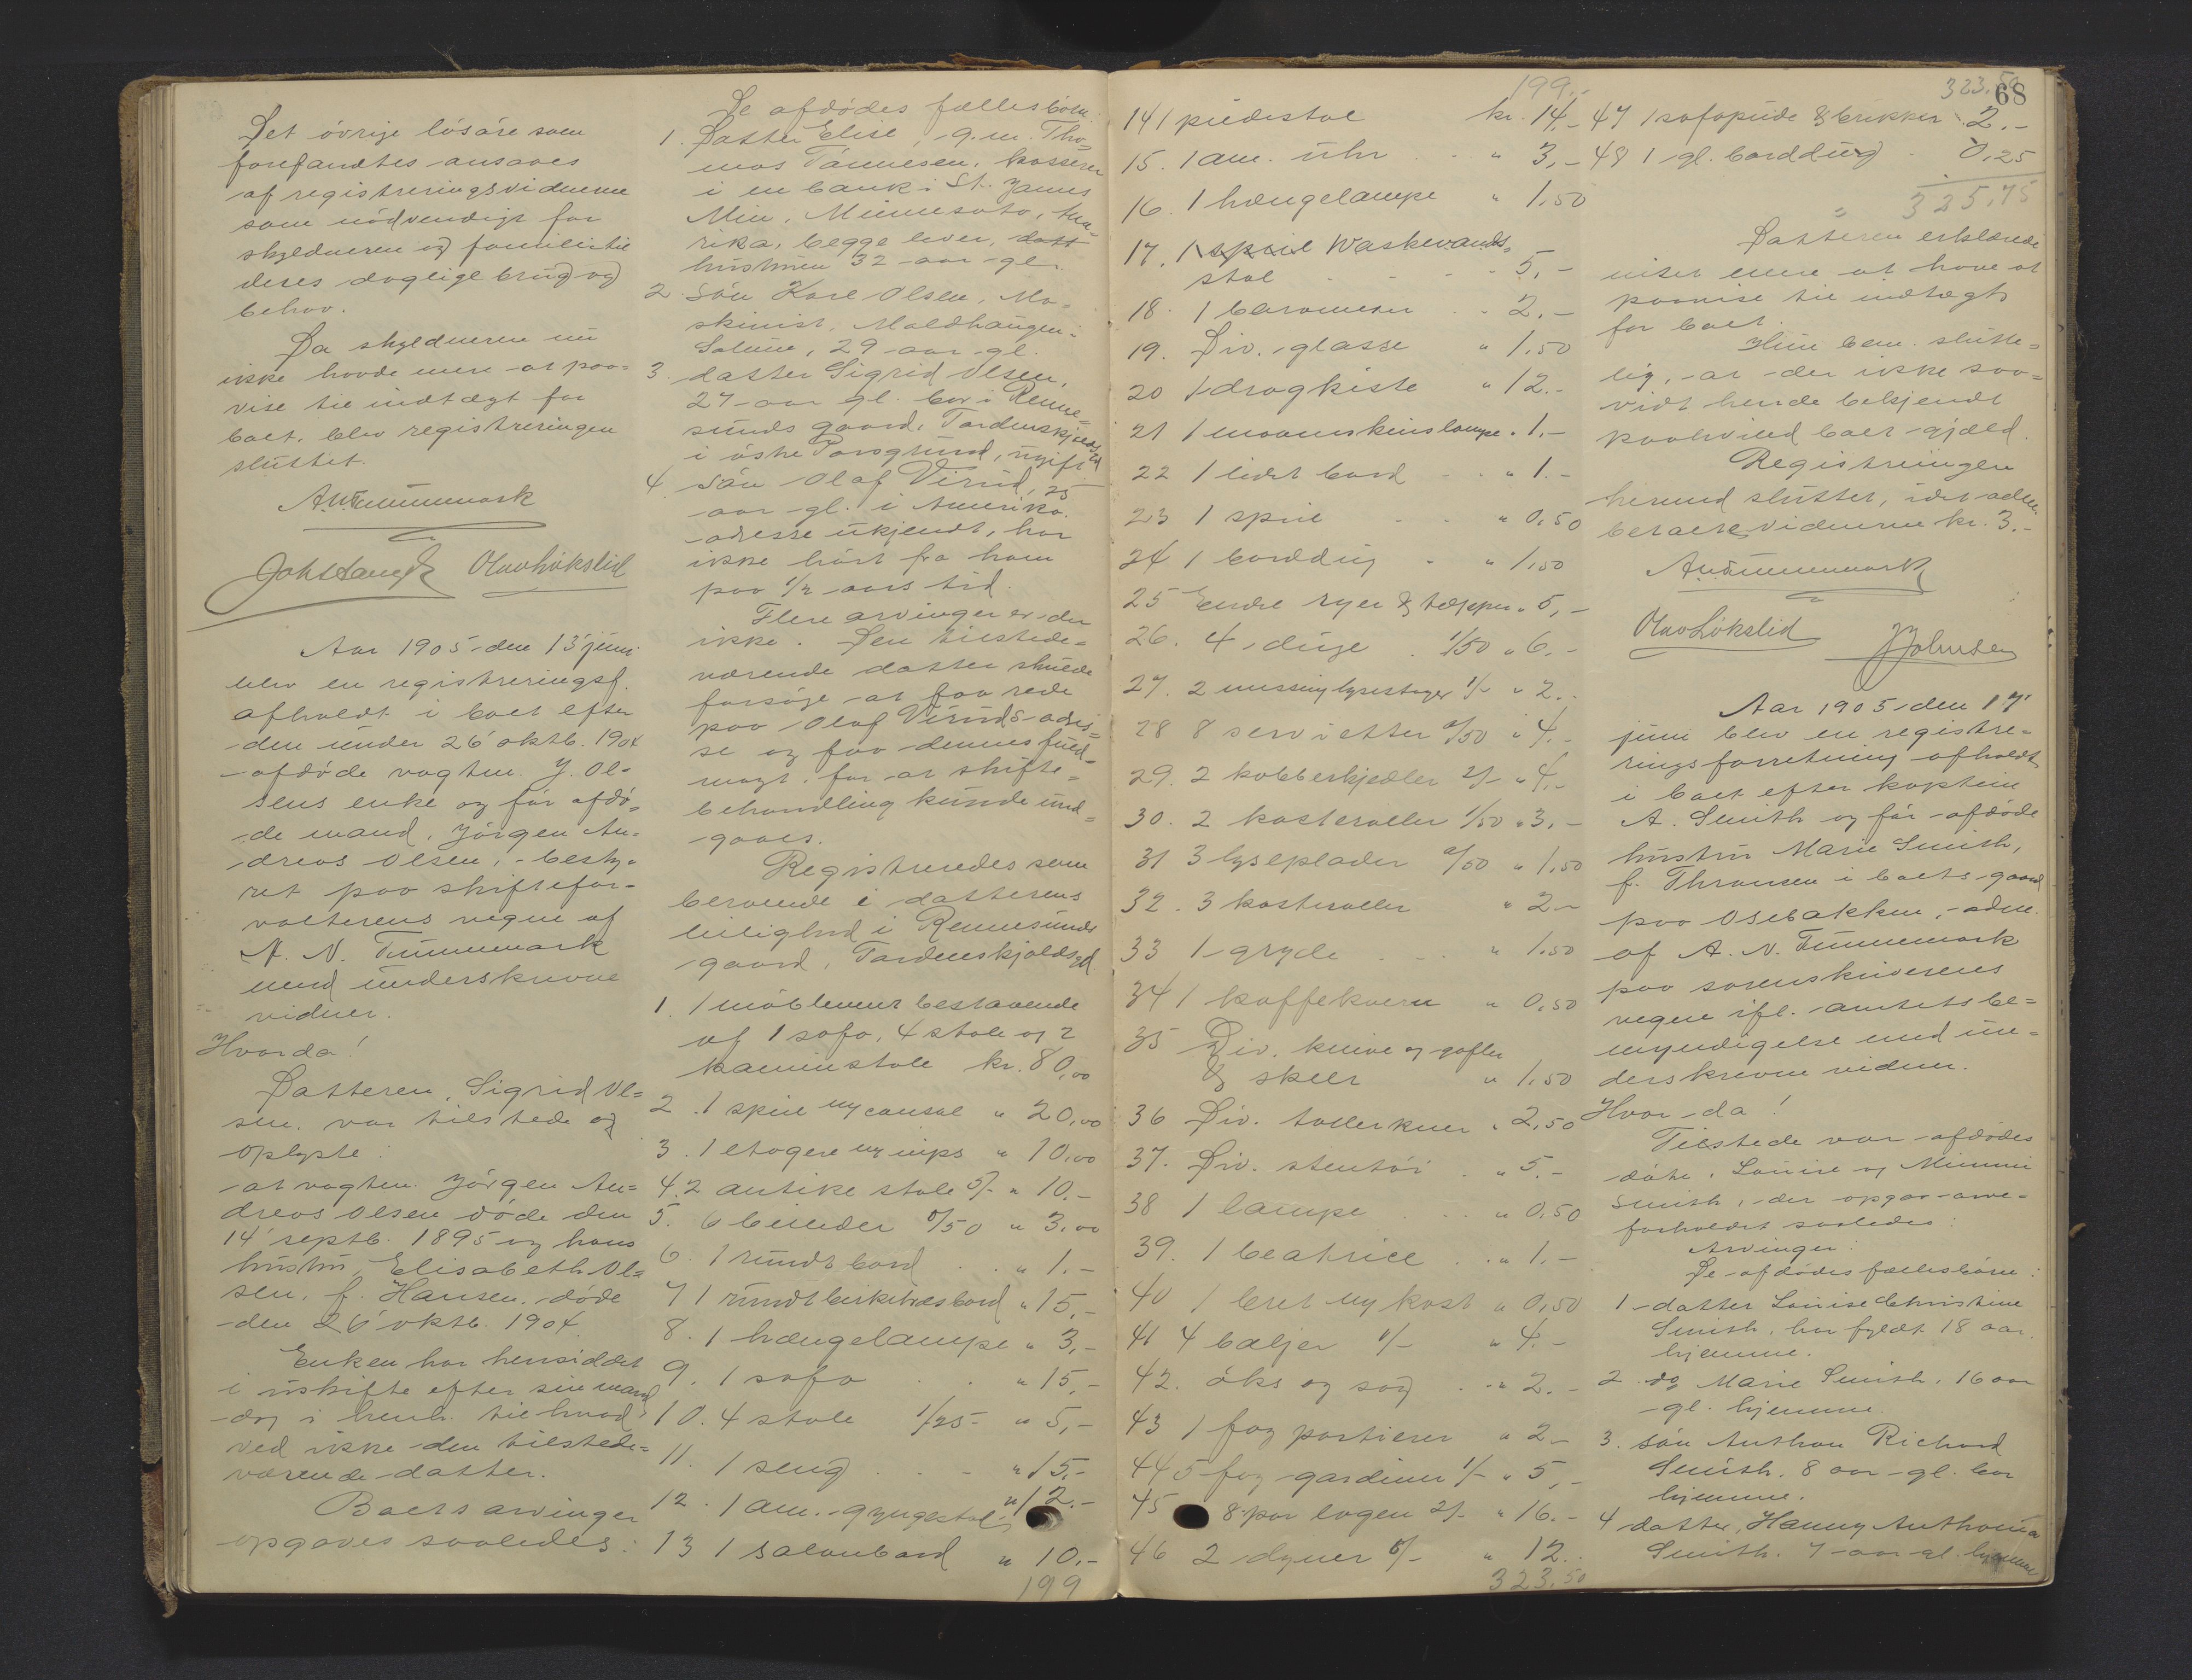 Det övrige lösöre som
forefandtes ansaaes
af registreringsvidnerne
som nödvendigt for
skyldneren og familie til
deres daglige brug og
behov.
Da skyldneren nu
ikke havde mere at paa=
vise til indtægt for
boet, blev registreringen
sluttet.
A. N. Tummemark
Olav Lökslid
Aar 1905 den 13' juni
blev en registreringsf.
afholdt i boet efter
den under 26' oktb. 1904
afdöde vagtm. J. Ol=
sens enke og för afdö=
de mand, Jörgen An=
dreas Olsen, - besty=
ret paa skiftefor=
valterens vegne af
A. N. Tummemark
med underskrevne
vidner.
Hvorda!
Datteren, Sigrid Ol=
sen, var tilstede og
oplyste:
at vagtm. Jörgen An=
dreas Olsen döde den
14' septb. 1895 og hans
hustru, Elisabeth Ol=
sen, f. Hansen, döde
den 26' oktb. 1904.
Enken har hensiddet
i uskifte efter sin mand
dog i henh. til hvad
ved ikke den tilstede=
værende datter.
Boets arvinger
opgaves saaledes:
De afdödes fællesbörn:
1. Datter Elise, g. m. Tho=
mas Tönnesen, kasserer
i en bank i St. James
Min, Minnesota, Ame=
rika, begge lever, datt
hustruen 32 aar gl.
2. Sön Karl Olsen, Ma=
skinist, Moldhaugen i
Solum, 29 aar gl.
3. datter Sigrid Olsen,
27 aar gl. bor i Renne=
sunds gaard, Tordenskjoldsgd
i östre Porsgrund, ugift
4. Sön Olaf Virud, 25
aar gl. i Amerika.
adresse ukjendt, har
ikke hört fra ham
paa 1/2 aars tid.
Flere arvinger er der
ikke. Den tilstede=
værende datter skulde
forsöge at faa rede
paa Olaf Viruds adres=
se og faa dennes fuld=
magt, for at skifte=
behandling kunde und=
gaaes.
Registreredes som
beroende i datterens
leilighed i Rennesunds
gaard, Tordenskjoldsgd.
1. 1 möblement bestaaende
af 1 sofa, 4 stole og 2
kaminstole kr. 80,00
2. 1 speil og consol " 20,00
3. 1 etagere og nips " 10,00
4. 2 antike stole 5/- " 10.-
5. 6 billeder 0/50 " 3,00
6. 1 rundt bord " 1.-
7 1 rundt birketræsbord " 15,-
8. 1 hængelampe " 3,-
9. 1 sofa " 15,-
10. 4 stole 1/25 " 5,-
11. 1 seng " 15,-
12. 1 am. gyngestol " 12.-
13 1 salonbord " 10.-
199
199.-
14 1 piedestal kr. 14,-
15. 1 am. uhr " 3,-
16. 1 hængelampe " 1,50
17. 1 speil Waskevands=
stol 5,-
18. 1 barometer 2,-
19. Div. glasse " 1,50
20 1 dragkiste " 12.-
21 1 maaneskinslampe " 1,-
22 1 lidet bord " 1.-
23 1 speil " 0,50
24 1 borddug " 1,50
25 Endel ryer & tæpper " 5,-
26. 4 duge 1/50 " 6,-
27. 2 messing lysestager 1/- " 2.-
28 8 servietter 0/50 " 4.-
29. 2 kobberkjedler 2/- " 4,-
30. 2 kasteroller 1/50 " 3,-
31 3 lyseplader 0/50 " 1,50
32. 3 kasteroller " 2-
33 1 gryde " 1,50
34 1 kaffekvern " 0,50
35 Div. knive og gafler
& skeer " 1,50
36 Div. tallerkner " 2,50
37. Div. stentöi " 5.-
38 1 lampe " 0,50
39. 1 beatrice " 1.-
40 1 bret og kost " 0,50
41 4 baljer 1/- " 4.-
42. öks og sag " 2.-
43 1 fag portierer " 2-
44 5 fag gardiner 1/- " 5,-
45 8 par lagen 2/- " 16.-
46 2 dyner 6/- " 12.
323.50
323.50
68
47 1 sofapude & brikker 2.-
48 1 gl. borddug 0,25
325,75
Datteren erklærede
intet mere at have at
paavise til indtægt
for boet.
Hun bem. slutte=
lig, at der ikke saa=
vidt hende bekjendt
paahviled boet gjæld.
Registreringen
hermed sluttet, idet adm.
betalte vidnerne kr. 3.-
A. N. Tummemark
Olav Lökslid
J Johnsen
Aar 1905 den 17'
juni blev en registre=
ringsforretning afholdt
i boet efter kaptein
A. Smith og för afdöde
hustru Marie Smith,
f. Thronsen i boets gaard
paa Osebakken, - adm.
af A. N. Tummemark
paa sorenskriverens
vegne ifl. amtets be=
myndigelse med un=
derskrevne vidner.
Hvor da!
Tilstede var afdödes
dötre, Louise og Mimmi
Smith, der opgav arve=
forholdet saaledes:
Arvinger:
De afdödes fællesbörn:
1 datter Louise Christine
Smith, har fyldt 18 aar,
hjemme.
2. do Marie Smith, 16 aar
gl. hjemme.
3. sön Anthon Richard
Smith, 8 aar gl. bor
hjemme.
4 datter, Hanny Anthonia
Smith. 7 aar gl. hjemme